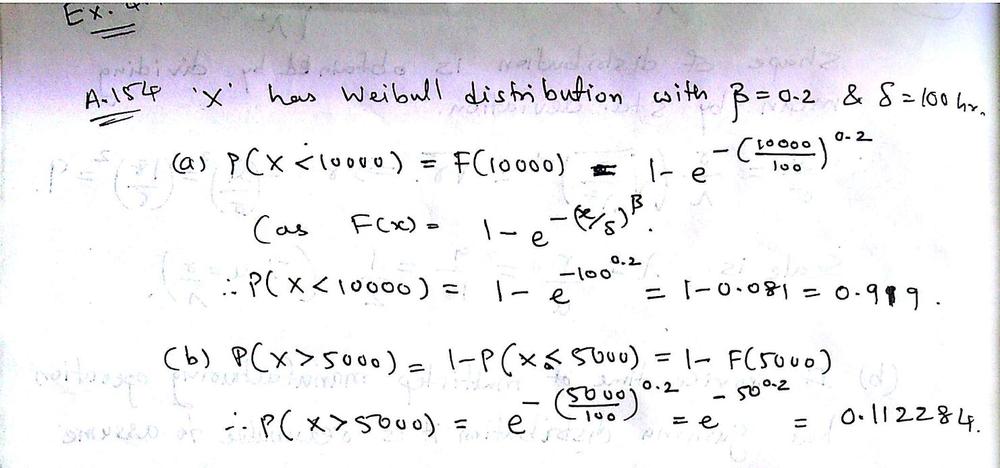 Ex. 4.
A.154 'X' has Weibull distribution with β = 0.2 & δ = 100 hr.
(a) P(X < 10000) = F(10000) = 1 - e^-(10000/100)^0.2
(as F(x) = 1 - e^-(x/δ)^β.
∴ P(X < 10000) = 1 - e^-100^0.2 = 1 - 0.081 = 0.919.
(b) P(X > 5000) = 1 - P(X ≤ 5000) = 1 - F(5000)
∴ P(X > 5000) = e^-(5000/100)^0.2 = e^-50^0.2 = 0.112284.